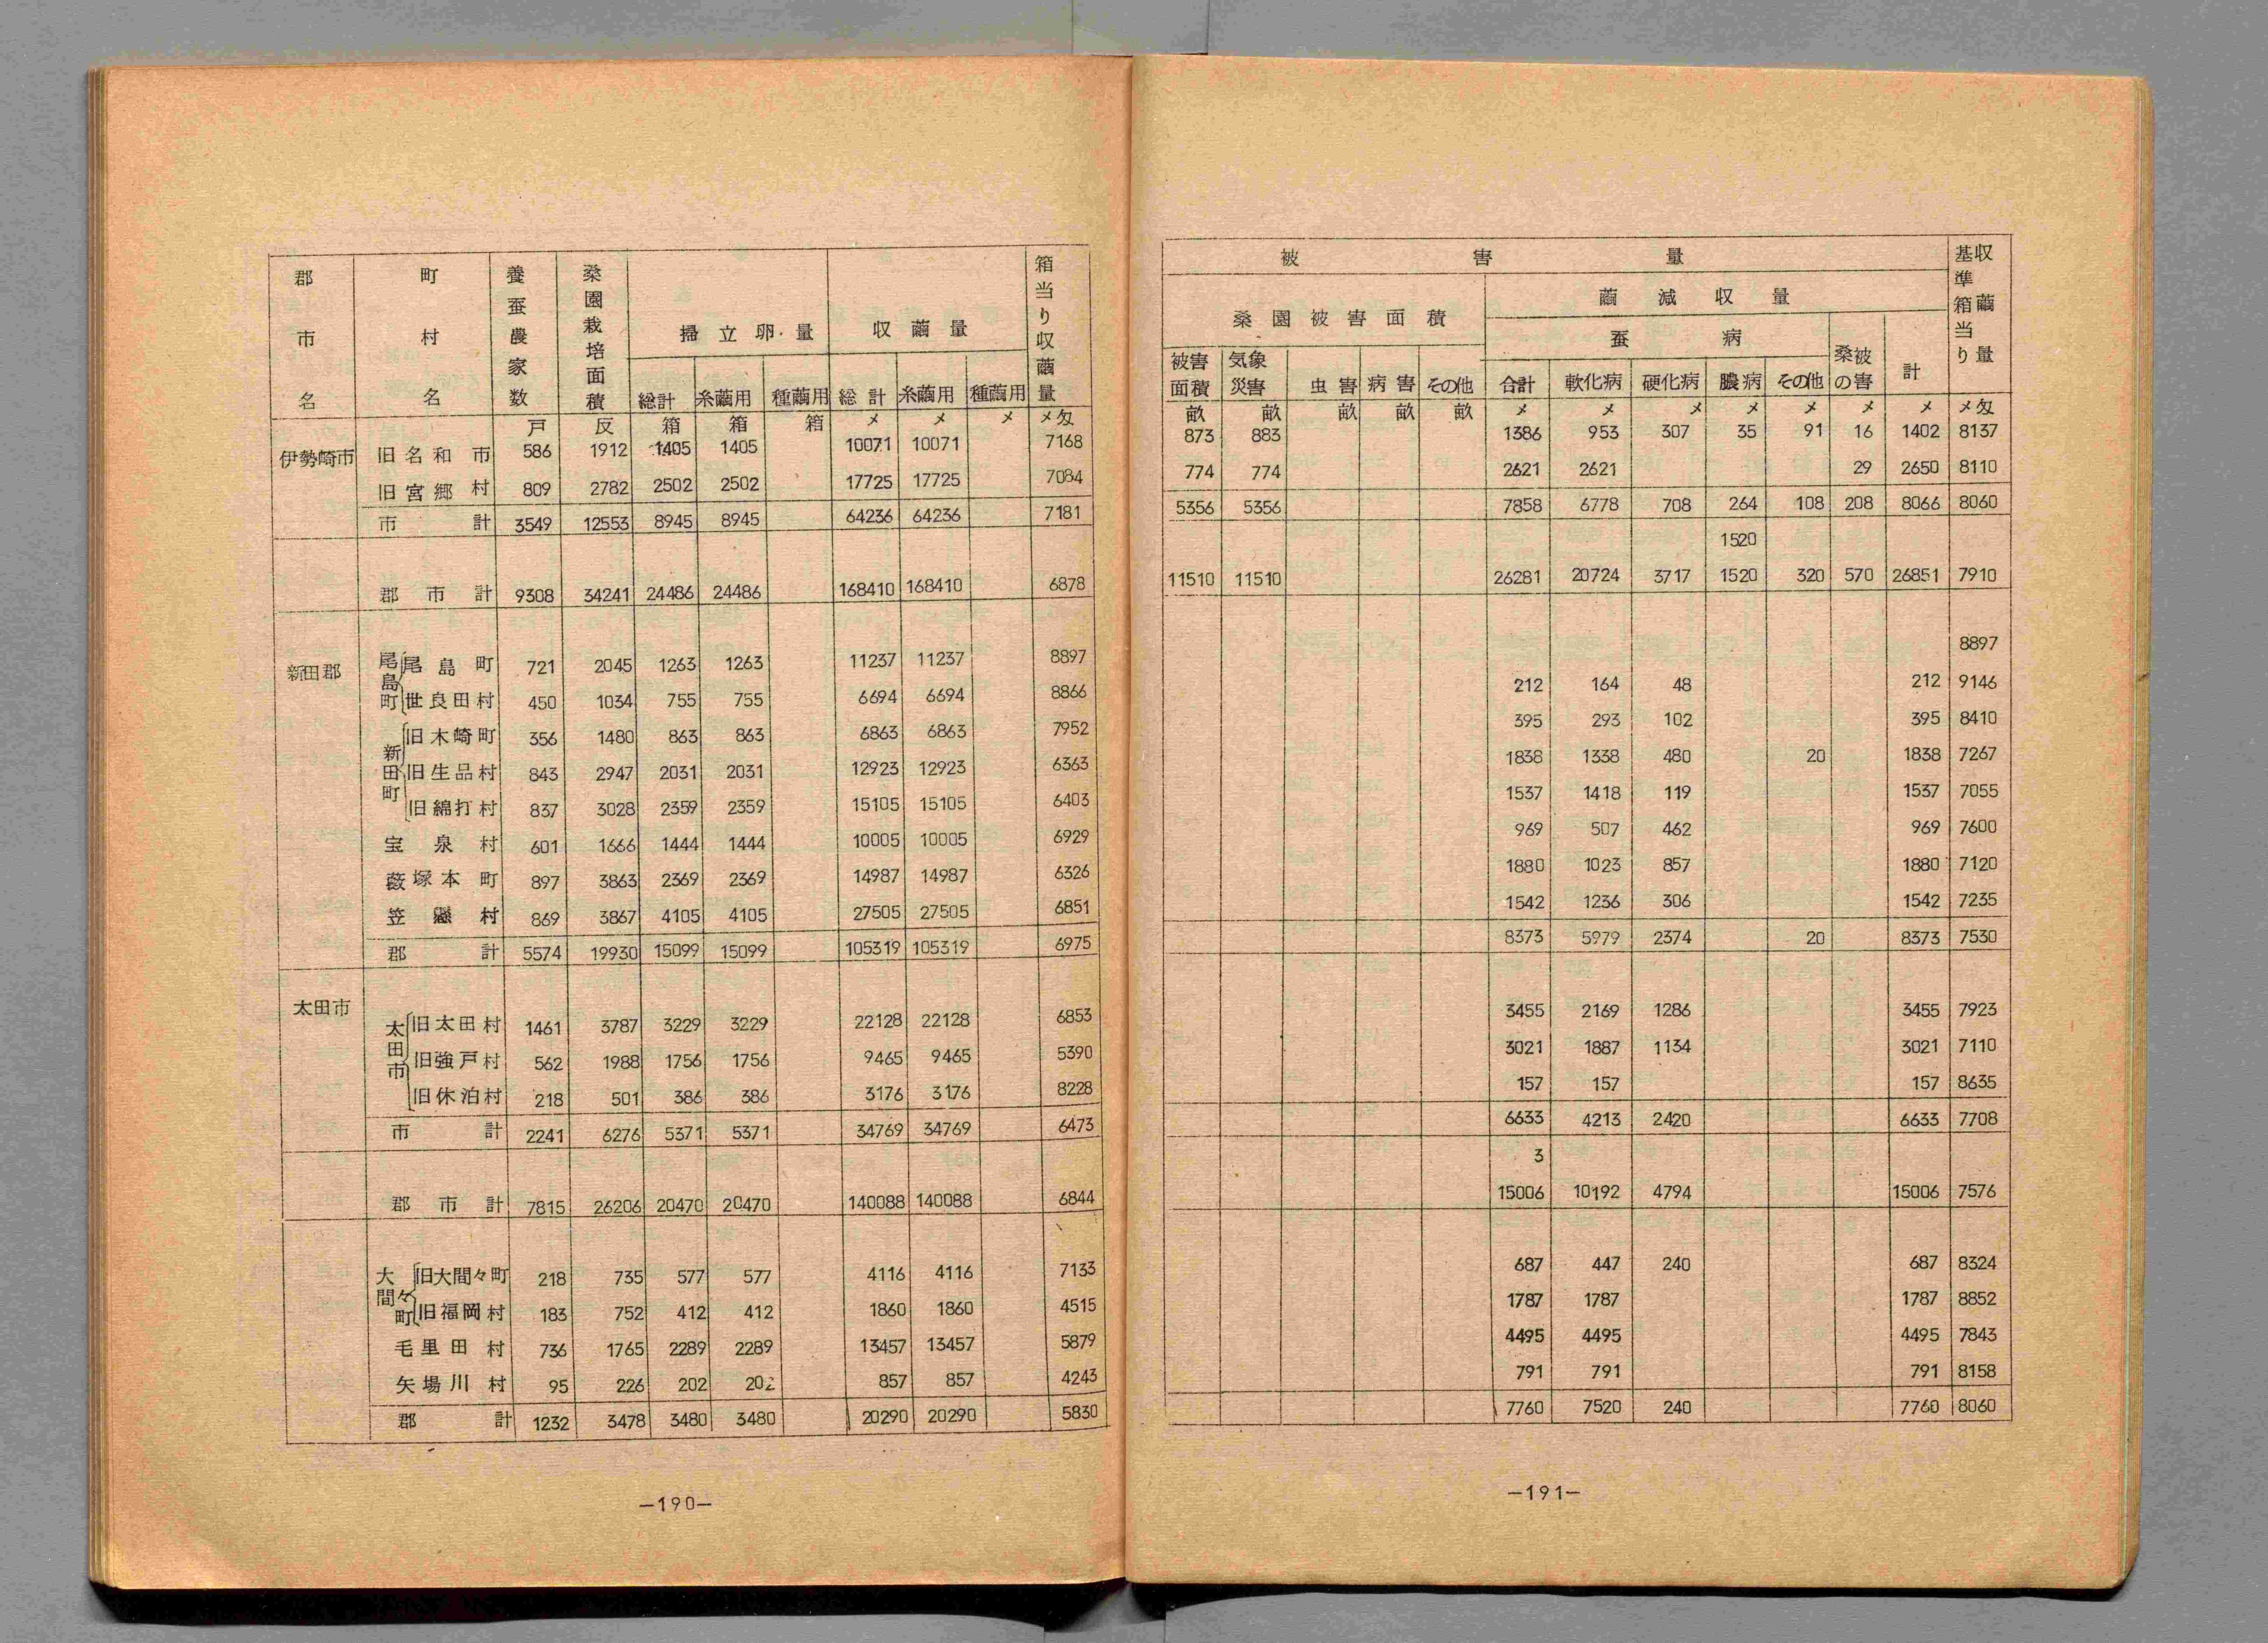 郡市名 町村名 養蚕農家数 桑園栽培面積 掃立卵量 収繭量 箱当り収繭量
総計 糸繭用 種繭用 総計 糸繭用 種繭用
戸 反 箱 箱 箱 メ メ メ メ匁
伊勢崎市 旧名和市 586 1912 1405 1405 10071 10071 7168
旧宮郷村 809 2782 2502 2502 17725 17725 7084
市計 3549 12553 8945 8945 64236 64236 7181
郡市計 9308 34241 24486 24486 168410 168410 6878
新田郡 尾島町 尾島町 721 2045 1263 1263 11237 11237 8897
世良田村 450 1034 755 755 6694 6694 8866
新田町 旧木崎町 356 1480 863 863 6863 6863 7952
旧生品村 843 2947 2031 2031 12923 12923 6363
旧綿打村 837 3028 2359 2359 15105 15105 6403
宝泉村 601 1666 1444 1444 10005 10005 6929
薮塚本町 897 3863 2369 2369 14987 14987 6326
笠懸村 869 3867 4105 4105 27505 27505 6851
郡計 5574 19930 15099 15099 105319 105319 6975
太田市 太田市 旧太田村 1461 3787 3229 3229 22128 22128 6853
旧強戸村 562 1988 1756 1756 9465 9465 5390
旧休泊村 218 501 386 386 3176 3176 8228
市計 2241 6276 5371 5371 34769 34769 6473
郡市計 7815 26206 20470 20470 140088 140088 6844
大間々町 旧大間々町 218 735 577 577 4116 4116 7133
旧福岡村 183 752 412 412 1860 1860 4515
毛里田村 736 1765 2289 2289 13457 13457 5879
矢場川村 95 226 202 202 857 857 4243
郡計 1232 3478 3480 3480 20290 20290 5830
—190—
被害量 基準箱当り収繭量
桑園被害面積 繭減収量
蚕病 桑の被害 計
被害面積 気象災害 虫害 病害 その他 合計 軟化病 硬化病 膿病 その他
畝 畝 畝 畝 畝 メ メ メ メ メ メ メ メ匁
873 883 1386 953 307 35 91 16 1402 8137
774 774 2621 2621 29 2650 8110
5356 5356 7858 6778 708 264 108 208 8066 8060
1520
11510 11510 26281 20724 3717 1520 320 570 26851 7910
8897
212 164 48 212 9146
395 293 102 395 8410
1838 1338 480 20 1838 7267
1537 1418 119 1537 7055
969 507 462 969 7600
1880 1023 857 1880 7120
1542 1236 306 1542 7235
8373 5979 2374 20 8373 7530
3455 2169 1286 3455 7923
3021 1887 1134 3021 7110
157 157 157 8635
6633 4213 2420 6633 7708
3
15006 10192 4794 15006 7576
687 447 240 687 8324
1787 1787 1787 8852
4495 4495 4495 7843
791 791 791 8158
7760 7520 240 7760 8060
—191—